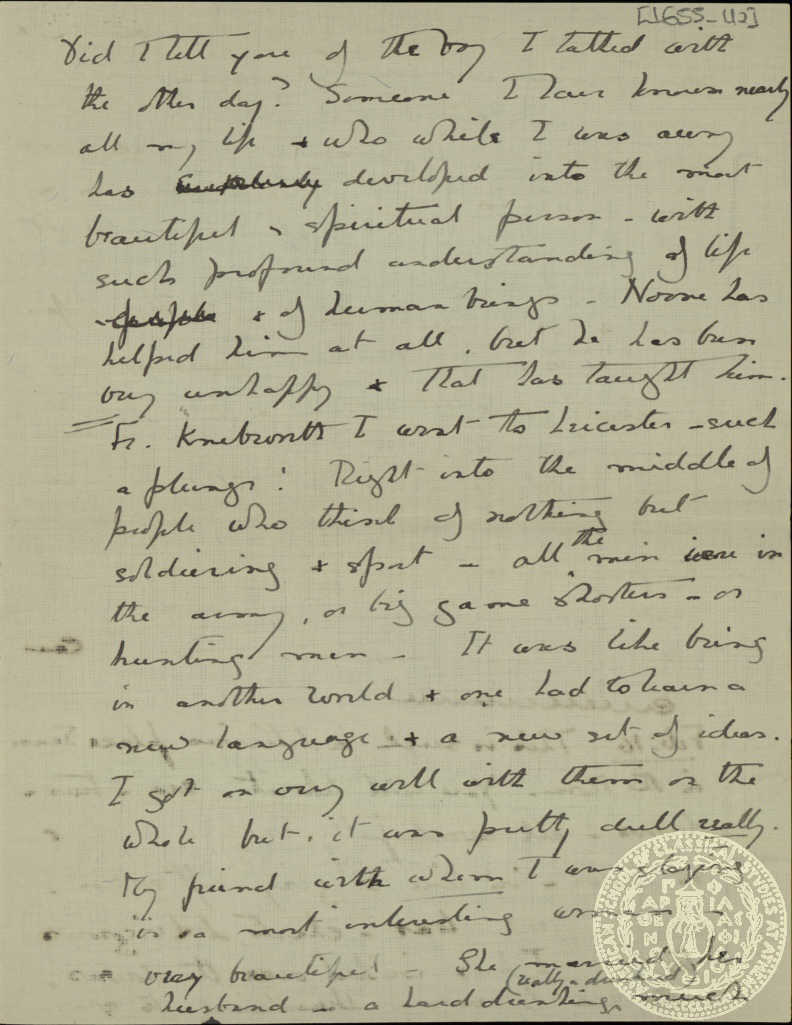 [1655-42]
Did I tell you of the boy I talked with
the other day? Someone I have known nearly
all my life & who while I was away
has suddenly developed into the most
beautiful & spiritual person - with
such profound understanding of life
& of human beings - Noone has
helped him at all, but he has been
very unhappy & that has taught him.
Fr. Knebworth I went to Leicester - such
a plunge! Right into the middle of
people who think of nothing but
soldiering & sport - all the men were in
the army, or big game shooters - or
hunting men - It was like being
in another world & one had to learn a
new language & a new set of ideas.
I got on very well with them on the
whole but, it was pretty dull really.
My friend with whom I was staying
is a most interesting woman -
very beautiful - She married her
(really a drunkard -
husband - a hard drinking, much